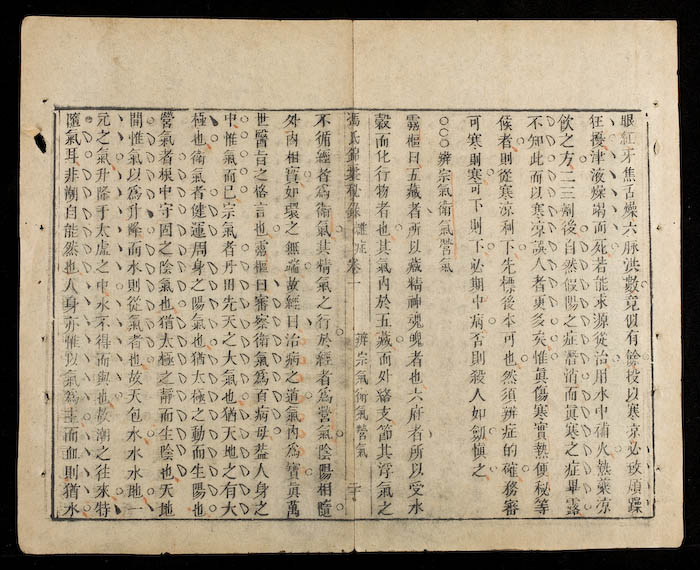 眼紅牙焦舌燥六脉洪數竟似有餘投以寒凉必致煩躁
狂擾津液燥竭而死若能求源從治用水中補火熱藥凉
飲之方二三劑後自然假陽之症潛消而眞寒之症畢露
不知此而以寒凉誤人者更多矣惟眞傷寒實熱便秘等
候者則從寒凉利下先標後本可也然須辨症的確務審
可寒則寒可下則下必期中病否則殺人如劍愼之
○○○辨宗氣衛氣營氣
靈樞曰五藏者所以藏精神魂魄者也六府者所以受水
穀而化行物者也其氣內於五藏而外絡支節其浮氣之
馮氏錦囊秘錄 雜症 卷一 辨宗氣衛氣營氣 二十
不循經者爲衛氣其精氣之行於經者爲營氣陰陽相隨
外內相貫如環之無端故經曰治病之道氣內爲寶眞萬
世醫旨之格言也靈樞曰審察衛氣爲百病母蓋人身之
中惟氣而已宗氣者丹田先天之大氣也猶天地之有太
極也衛氣者健運周身之陽氣也猶太極之動而生陽也
營氣者根中守固之陰氣也猶太極之靜而生陰也天地
間惟氣以爲升降而水則從氣者也故天包水水承地一
元之氣升降于太虛之中水不得而與也故潮之往來特
隨氣耳非潮自能然也人身亦惟以氣爲主而血則猶水